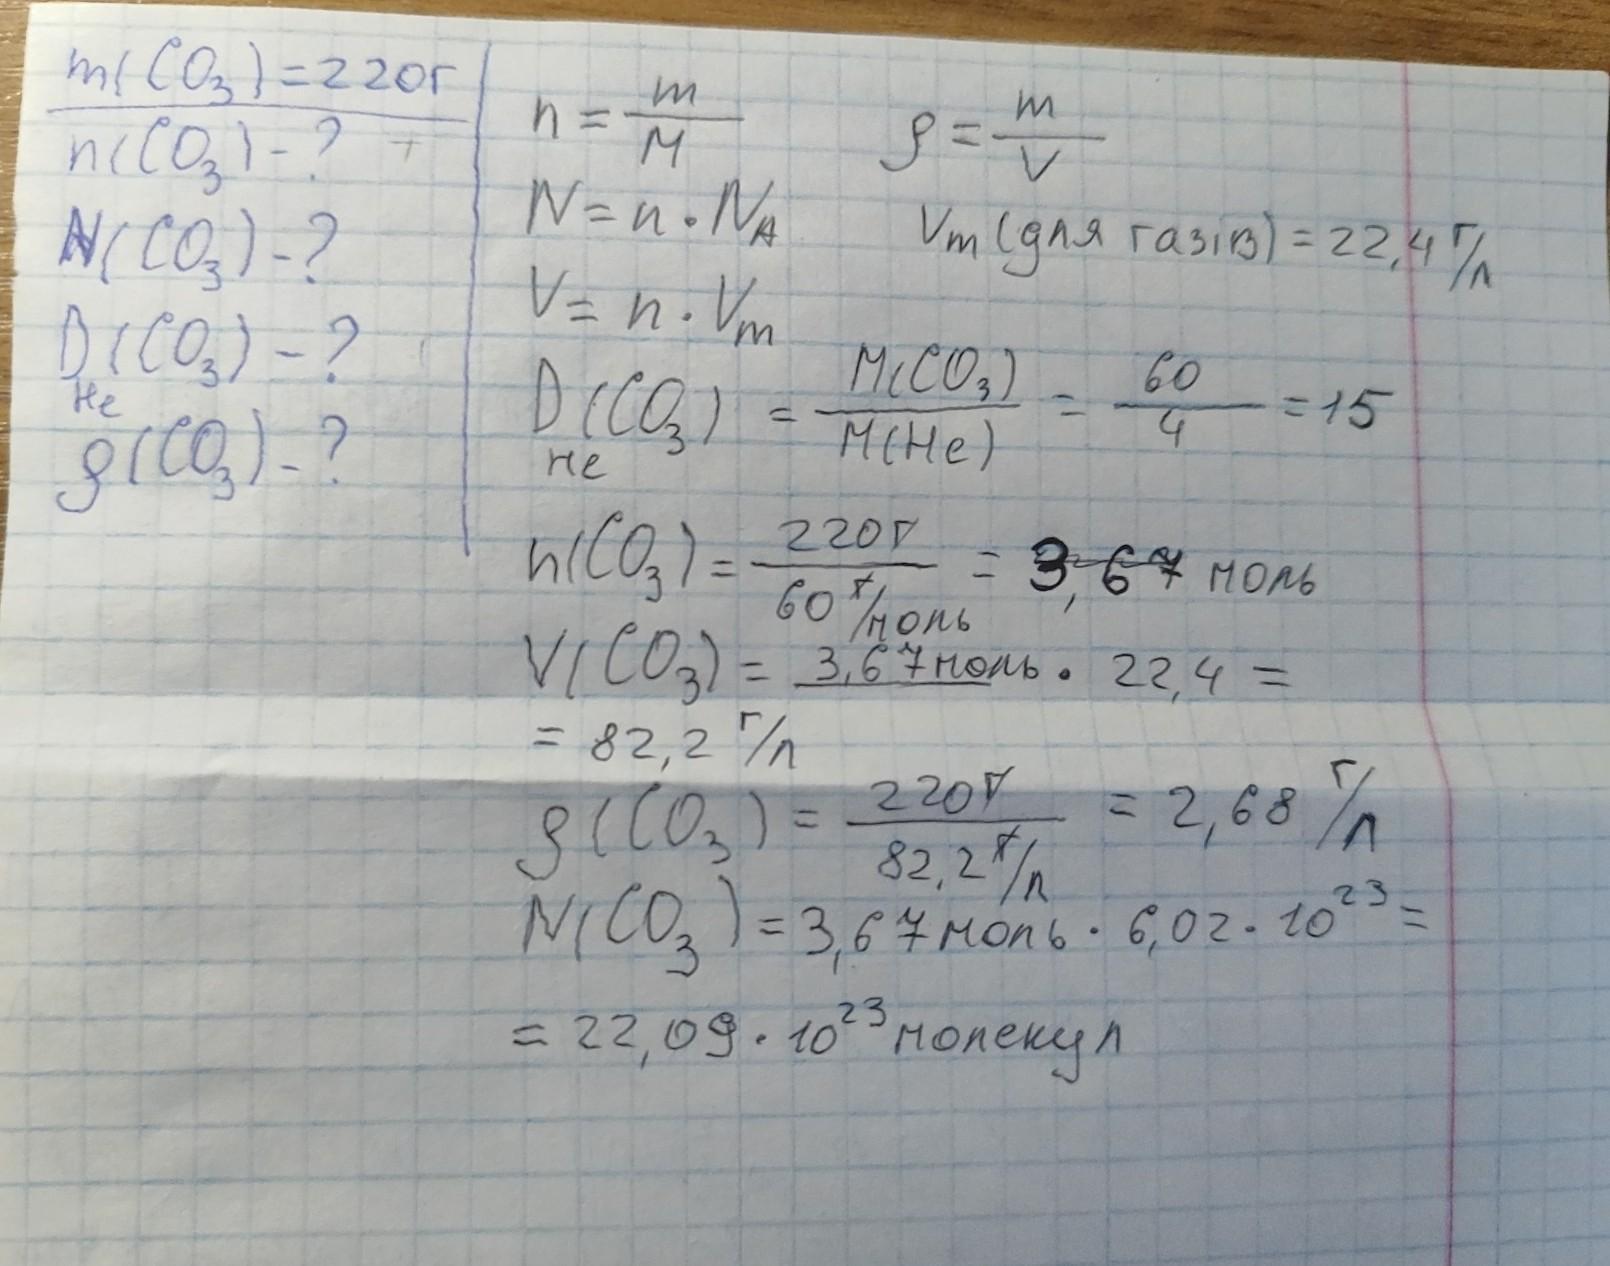 m(CO₃) = 220г
n(CO₃) - ?
N(CO₃) - ?
D(CO₃) - ?
He
ρ(CO₃) - ?
n = m/M
ρ = m/V
N = n · N_A
Vm (для газів) = 22,4 г/л
V = n · Vm
D(CO₃) = M(CO₃)/M(He) = 60/4 = 15
He
n(CO₃) = 220г/60 г/моль = 3,67 моль
V(CO₃) = 3,67 моль · 22,4 =
= 82,2 г/л
ρ(CO₃) = 220г/82,2 г/л = 2,68 г/л
N(CO₃) = 3,67 моль · 6,02 · 10²³ =
= 22,09 · 10²³ молекул